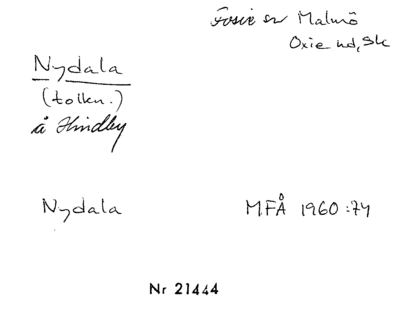 Fosie sn Malmö
Oxie hd, Sk
Nydala
(tolkn.)
å Hindby
Nydala MFÅ 1960:74
Nr 21444